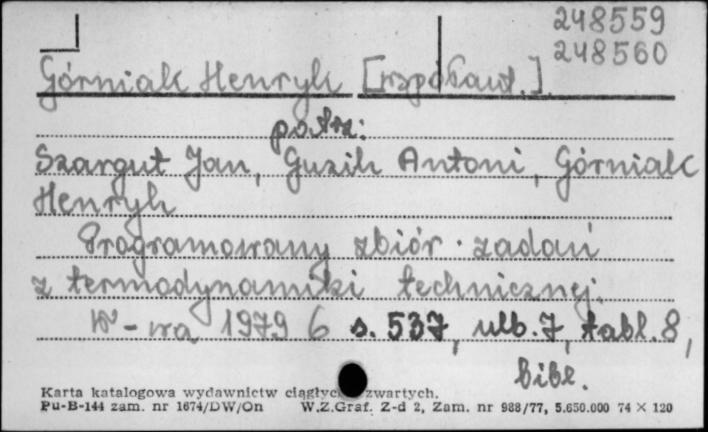 248559
248560
Górniak Henryk [współaut.]
patrz:
Szargut Jan, Guzik Antoni, Górniak
Henryk
Programowany zbiór zadań
z termodynamiki technicznej.
W-wa 1979 6 s. 537, nlb. 7, tabl. 8,
bibl.
Karta katalogowa wydawnictw ciągłych zwartych.
Pu-B-144 zam. nr 1674/DW/On W.Z.Graf. Z-d 2, Zam. nr 988/77, 5.650.000 74 × 120